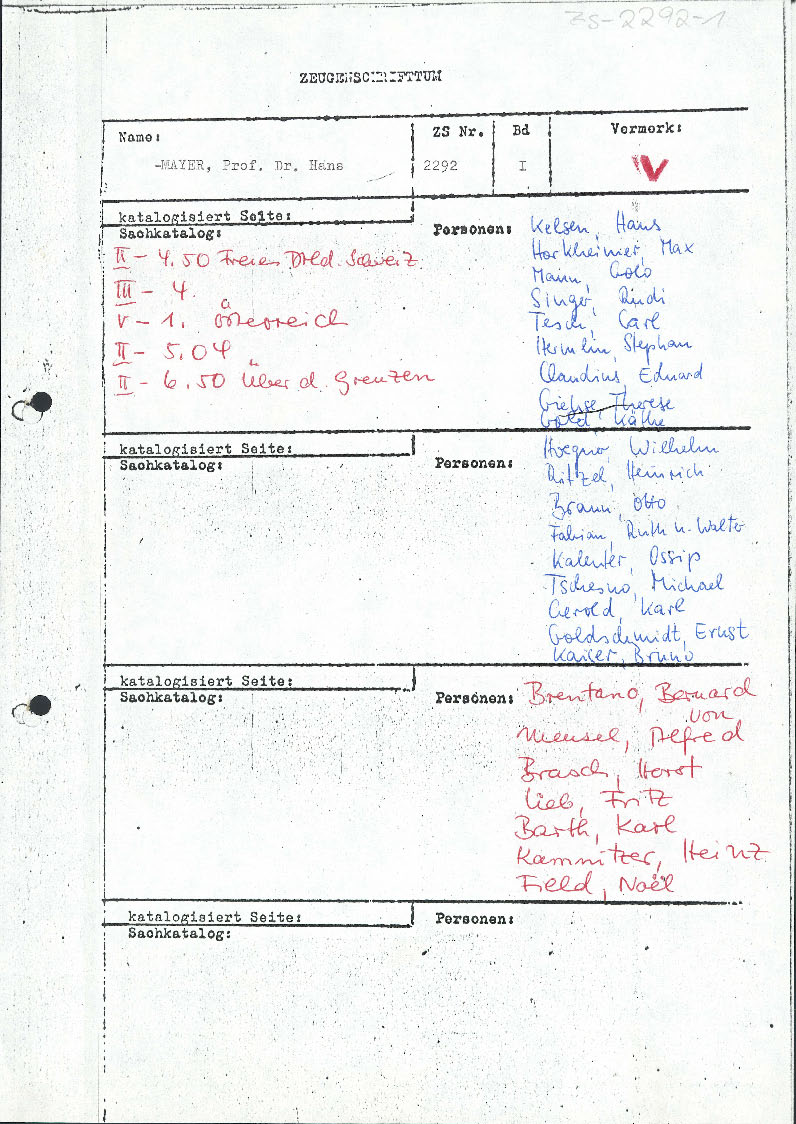 ZS-2292-1
ZEUGENSCHRIFTTUM
Name: ZS Nr. Bd Vermerk:
-MAYER, Prof. Dr. Hans 2292 I V
katalogisiert Seite:
Sachkatalog: Personen: Kelsen, Hans
II - 4.50 Freies Dtld. Schweiz Horkheimer, Max
III - 4. Mann, Golo
V - 1. Österreich Singer,
II - 5.04 Tesch, Carl
II - 6.50 über d. Grenzen Hermlin, Stephan
Claudius, Eduard
Giehse, Therese
Gold, Käthe
katalogisiert Seite:
Sachkatalog: Personen: Hoegner, Wilhelm
Ritzel, Heinrich
Braun, Otto
Fabian, Ruth u. Walter
Kalenter, Ossip
Tschesno, Michael
Gerold, Karl
Goldschmidt, Ernst
Kaiser, Bruno
katalogisiert Seite:
Sachkatalog: Personen: Brentano, Bernard
von
Meusel, Alfred
Brasch, Horst
Lieb, Fritz
Barth, Karl
Kamnitzer, Heinz
Field, Noël
katalogisiert Seite: Personen:
Sachkatalog: